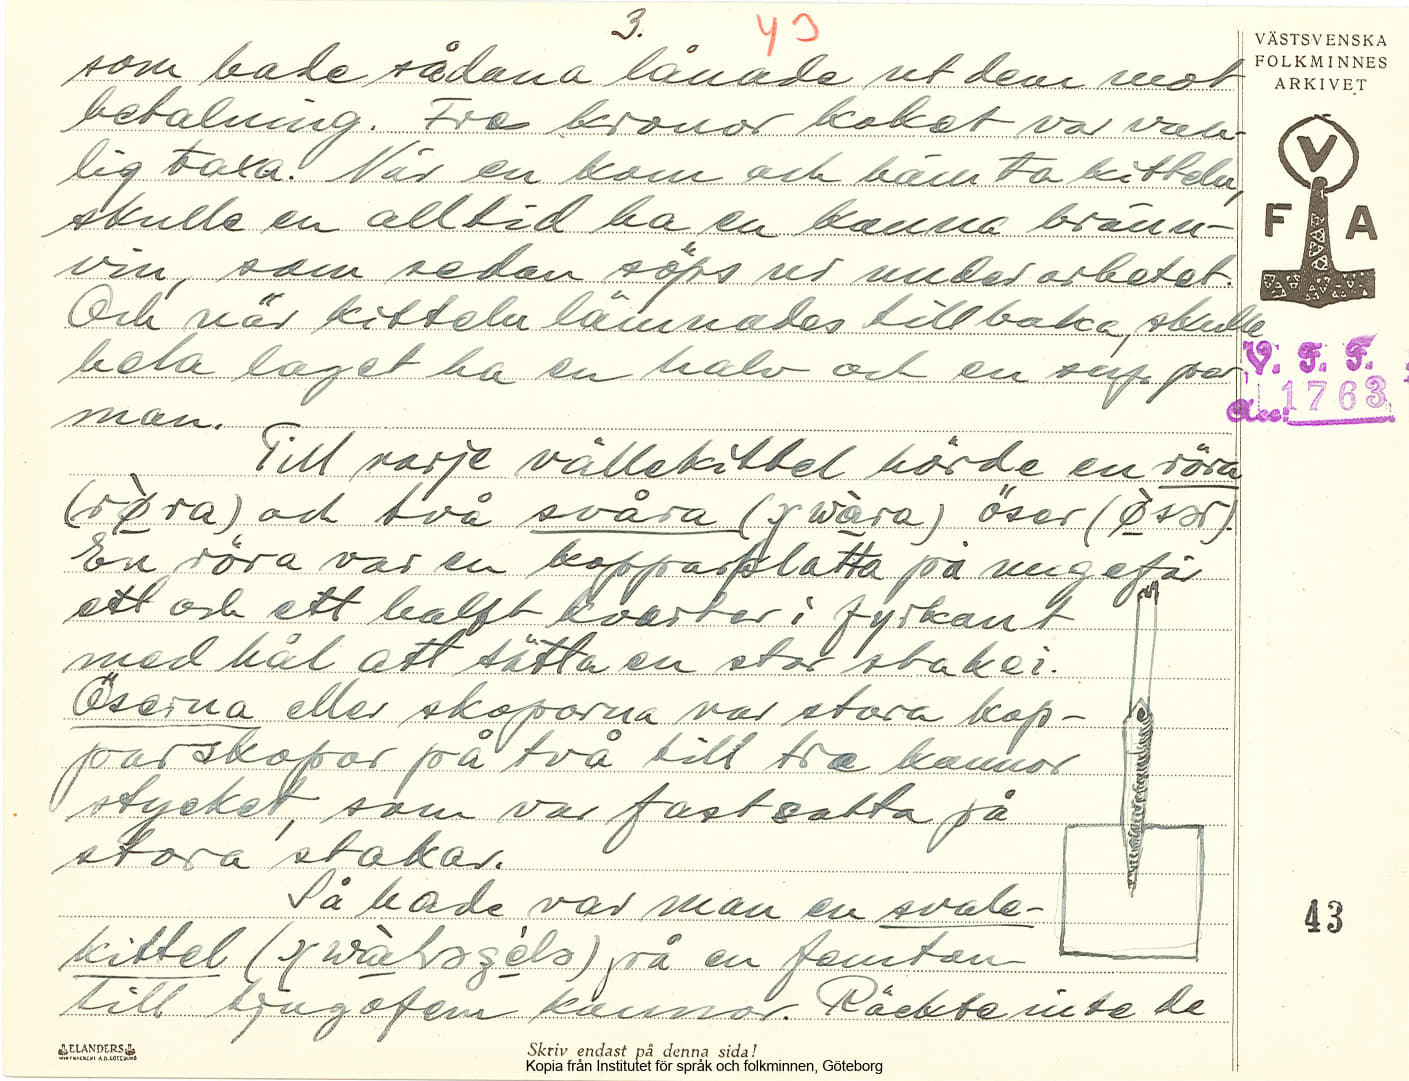 3.
43
VÄSTSVENSKA
FOLKMINNES
ARKIVET
V
F A
V. F. F.
Acc: 1763
som hade sådana lånade ut dem mot
betalning. Tre kronor koket var van-
lig taxa. När en kom och hämta kitteln,
skulle en alltid ha en kanna bränn-
vin, som sedan söps ur under arbetet.
Och när kitteln lämnades tillbaka, skulle
hela laget ha en halv och en sup per
man.
Till varje vällekittel hörde en röra
(rø̀ra) och två svåra (wàra) öser (ø̀sər).
En röra var en kopparplatta på ungefär
ett och ett halft kvarter i fyrkant
med hål att sätta en stor stake i.
Öserna eller skoporna var stora kop-
parskopor på två till tre kannor
stycket, som var fastsatta på
stora stakar.
Så hade var man en svale-
kittel på en femton
till tjugofem kannor. Räckte inte de
43
ELANDERS
Skriv endast på denna sida!
Kopia från Institutet för språk och folkminnen, Göteborg